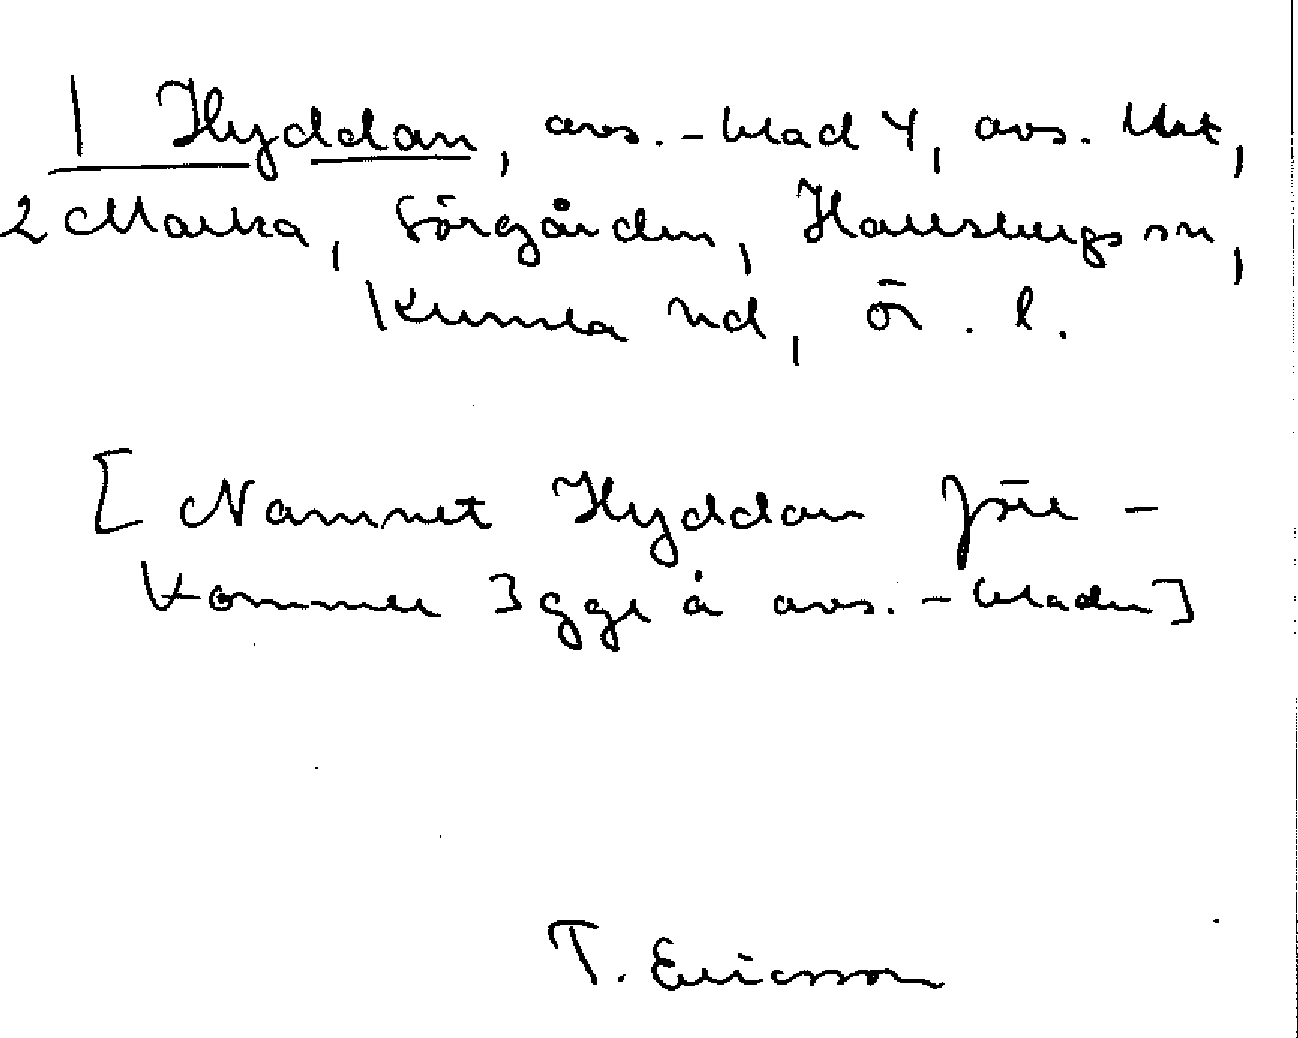 1 Hyddan, avs.-blad 4, avs. Utst,
2 Marka, Sörgården, Hallsbergs sn,
Kumla hd, ör. l.
[Namnet Hyddan före-
kommer 3 ggr å avs.-bladen]
T. Ericsson